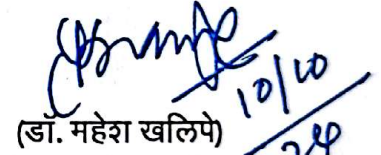 10/10
(डॉ. महेश खलिपे)
24